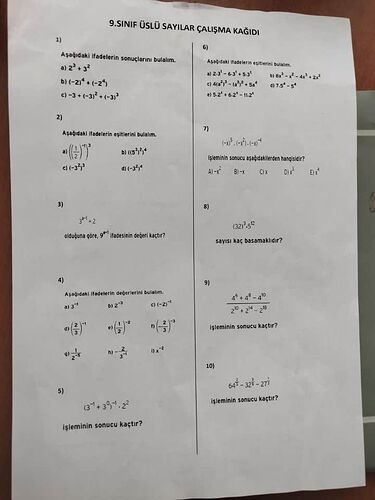 9.SINIF ÜSLÜ SAYILAR ÇALIŞMA KAĞIDI
1)
Aşağıdaki ifadelerin sonuçlarını bulalım.
a) 2³ + 3²
b) (−2)⁴ + (−2⁴)
c) −3 + (−3)² + (−3)³
2)
Aşağıdaki ifadelerin eşitlerini bulalım.
a) ((1/2)⁻¹)³ b) ((5³)²)⁴
c) (−3²)³ d) (−3²)⁴
3)
olduğuna göre, 9ᵃ⁻¹ ifadesinin değeri kaçtır?
4)
Aşağıdaki ifadelerin değerlerini bulalım.
a) 3⁻⁴ b) 2⁻³ c) (−2)⁻¹
d) (2/3)⁻¹ e) (1/2)⁻² f) (−2/3)⁻³
g) 1/2⁻⁵ h) −2/3⁻¹ i) x⁻²
5)
(3⁻¹ + 3⁰)⁻¹ · 2²
işleminin sonucu kaçtır?
6)
Aşağıdaki ifadelerin eşitlerini bulalım.
a) 2·3¹ − 6·3¹ + 5·3¹ b) 8x³ − x² − 4x³ + 2x²
c) 4(a²)³ − (a³)² + 5a⁴ d) 7.5⁴ − 5⁴
e) 5.2⁴ + 6.2⁴ − 11.2⁴
7)
(−x)⁵ . (−x²) . (−x)⁻⁴
işleminin sonucu aşağıdakilerden hangisidir?
A) −x² B) −x C) x D) x³ E) x⁴
8)
(32)³·5¹²
sayısı kaç basamaklıdır?
9)
4⁶ + 4⁸ − 4¹⁰
2¹⁰ + 2¹⁴ − 2¹⁸
işleminin sonucu kaçtır?
10)
işleminin sonucu kaçtır?